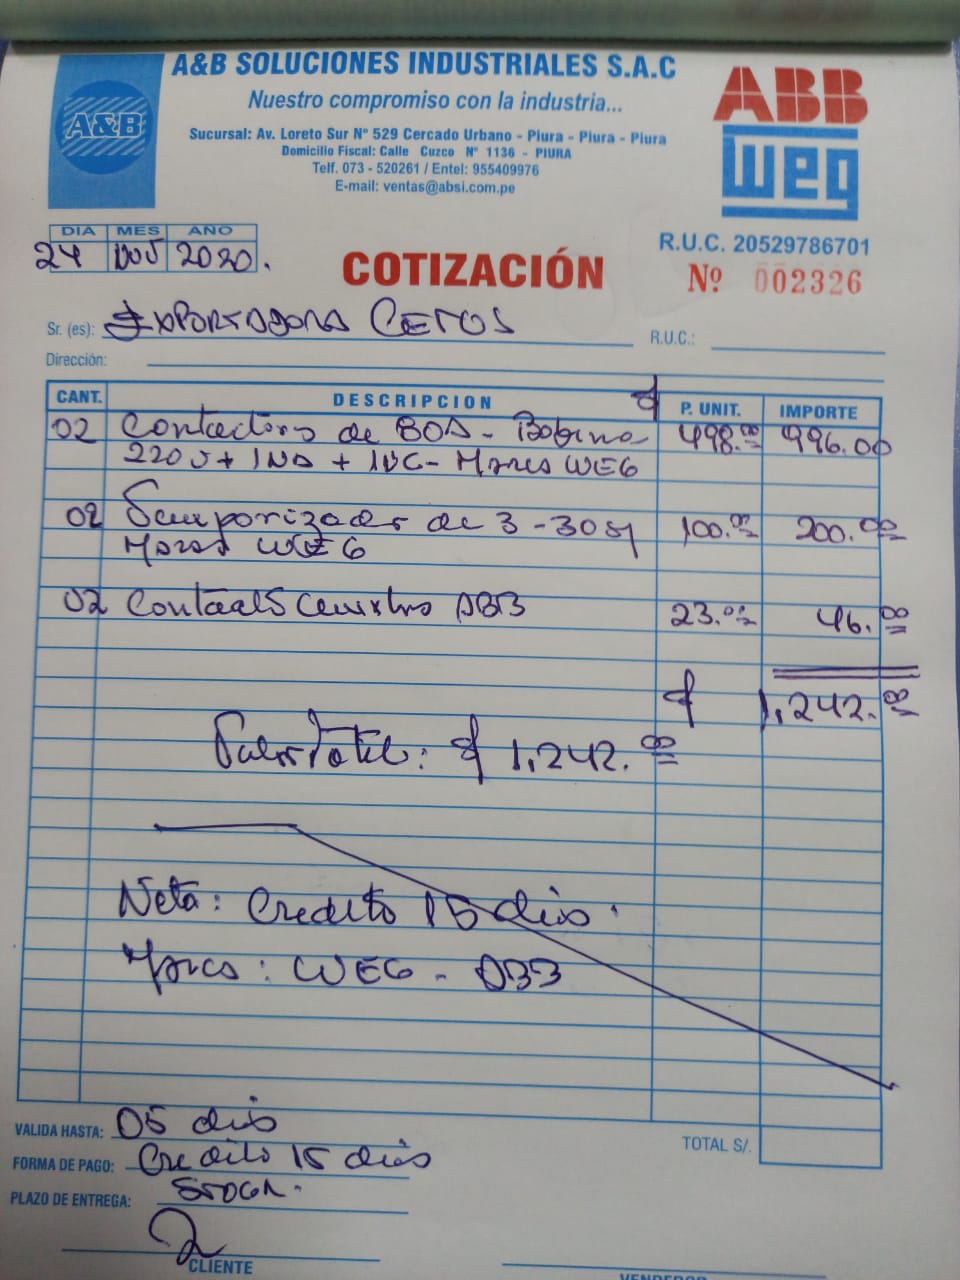 A&B SOLUCIONES INDUSTRIALES S.A.C
A&B
Nuestro compromiso con la industria...
Sucursal: Av. Loreto Sur Nº 529 Cercado Urbano - Piura - Piura - Piura
Domicilio Fiscal: Calle Cuzco Nº 1136 - PIURA
Telf. 073 - 520261 / Entel: 955409976
E-mail: ventas@absi.com.pe
ABB
weg
DIA MES AÑO
24 NOV 2020.
R.U.C. 20529786701
COTIZACIÓN
Nº 002326
Sr. (es): EXPORTADORA CETUS
R.U.C.:
Dirección:
CANT. DESCRIPCION $ P. UNIT. IMPORTE
02 Contactors de 80A - Bobina 498.00 996.00
220V + 1NA + 1NC - Marca WEG
02 Temporizador de 3 - 30 sg 100.00 200.00
Marca WEG
02 ABB 23.00 46.00
$ 1,242.00
Valor Total: $ 1,242.00
Nota: Credito 15 dias.
Marca: WEG - ABB
VALIDA HASTA: 05 dias
TOTAL S/.
FORMA DE PAGO: Credito 15 dias
PLAZO DE ENTREGA: STOCK.
CLIENTE
VENDEDOR